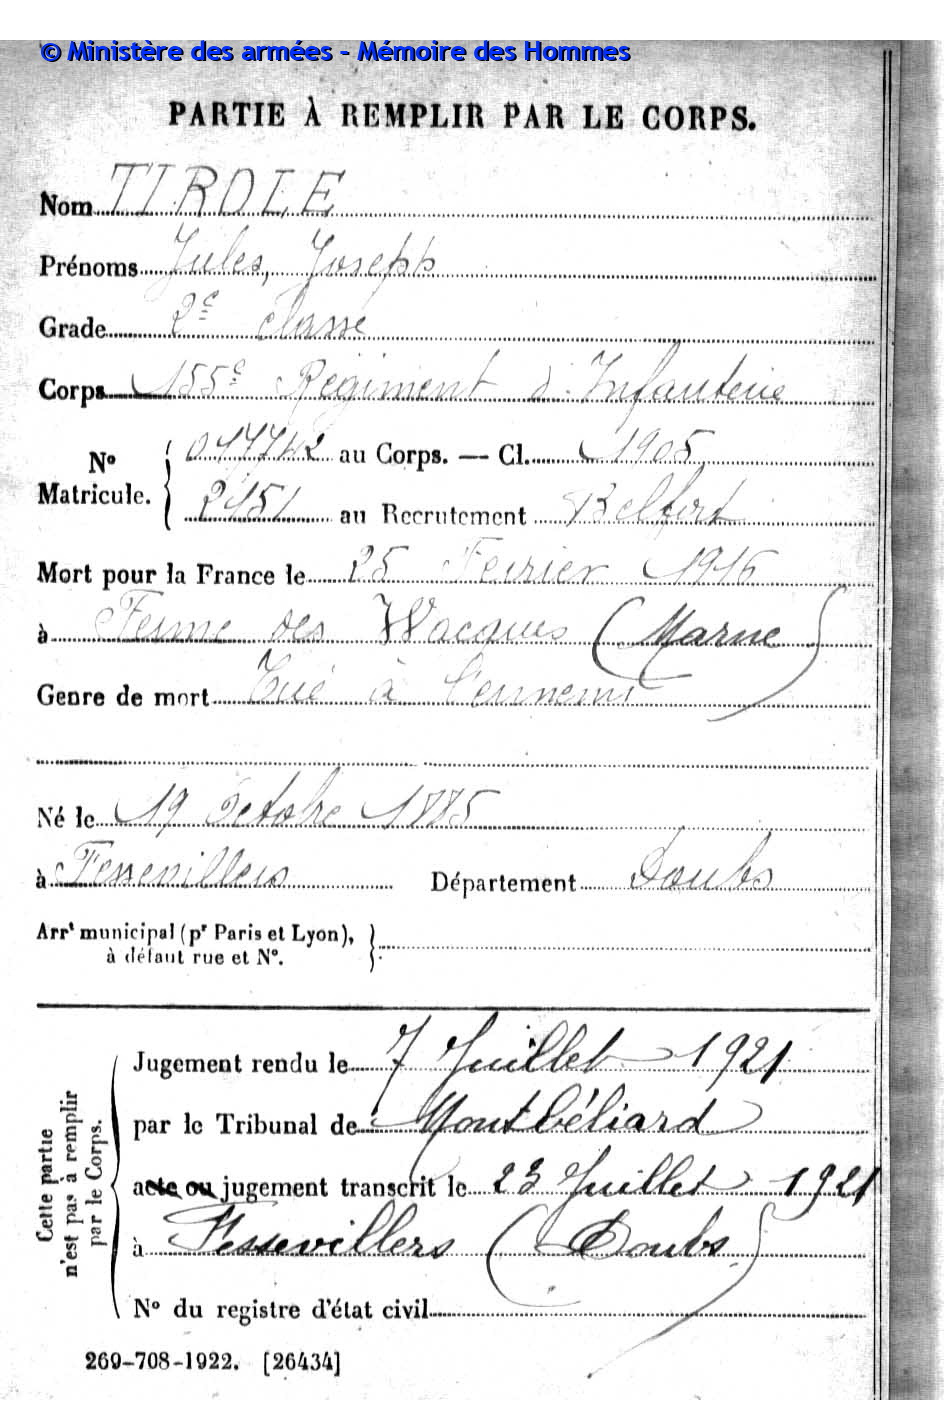 © Ministère des armées - Mémoire des Hommes
PARTIE À REMPLIR PAR LE CORPS.
Nom TIROLE
Prénoms Jules, Joseph
Grade 2e classe
Corps 155e Régiment d'Infanterie
No Matricule. { 017742 au Corps. — Cl. 1905
2151 au Recrutement Belfort
Mort pour la France le 25 Février 1916
à Ferme des Wacques (Marne)
Genre de mort Tué à l'ennemi
Né le 19 Octobre 1885
à Fessevillers Département Doubs
Arrt municipal (pr Paris et Lyon),
à défaut rue et No.
Cette partie n'est pas à remplir par le Corps.
Jugement rendu le 7 Juillet 1921
par le Tribunal de Montbéliard
acte ou jugement transcrit le 23 Juillet 1921
à Fessevillers (Doubs)
No du registre d'état civil
269-708-1922. [26434]